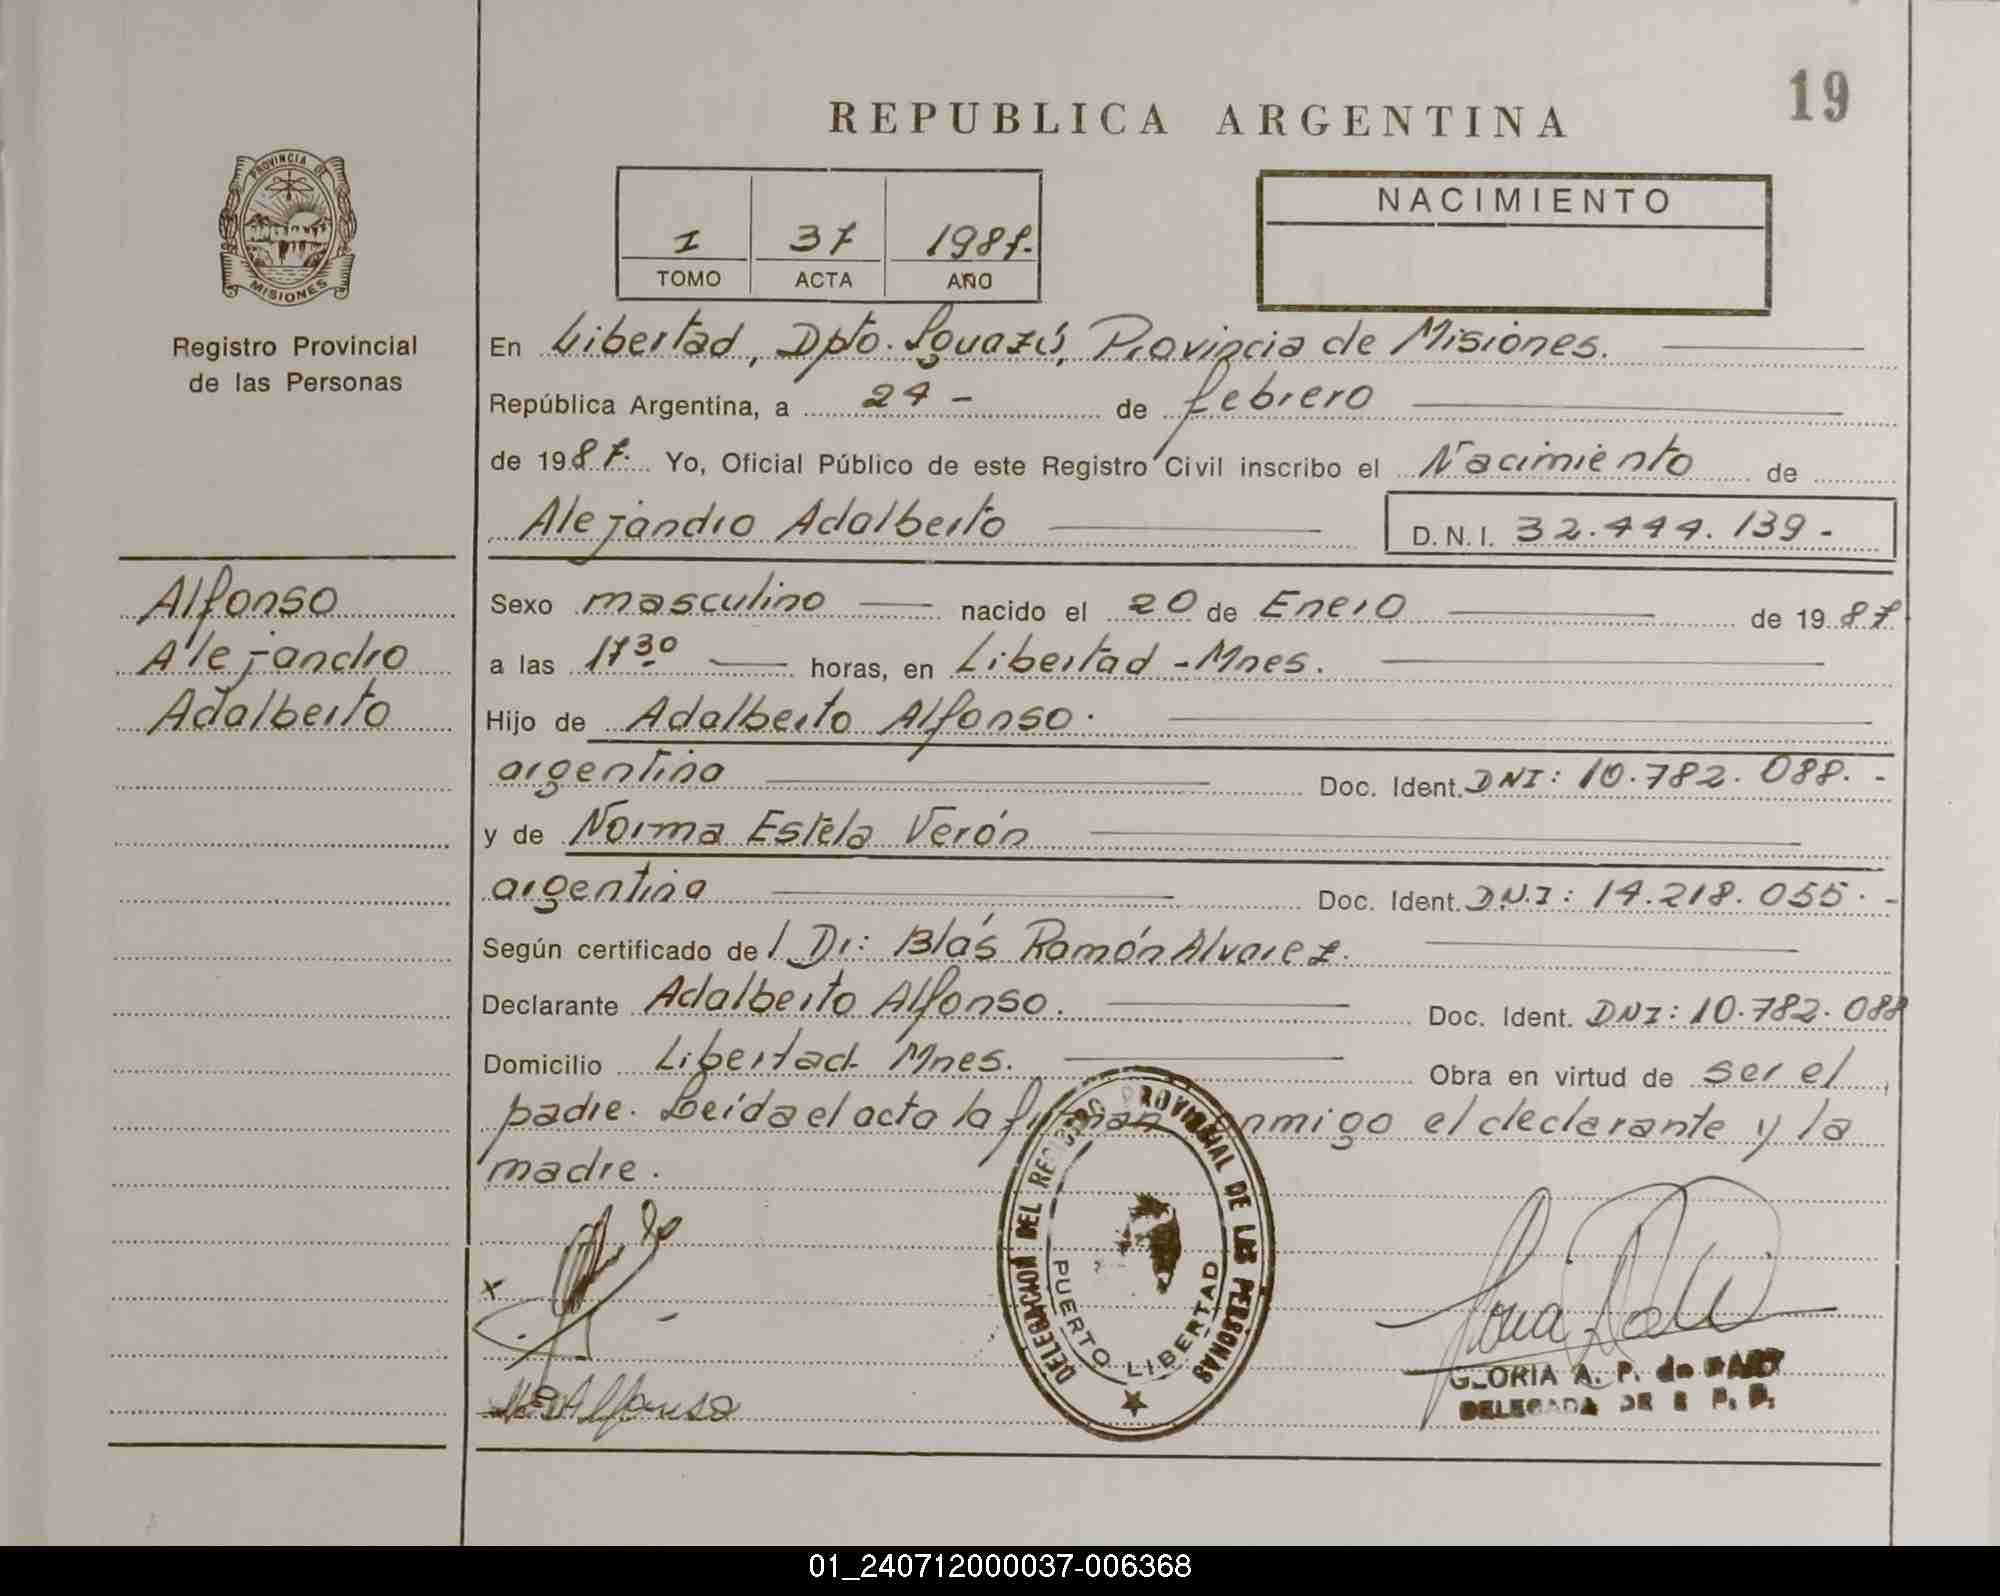 19
REPUBLICA ARGENTINA
PROVINCIA
MISIONES
Registro Provincial
de las Personas
I 37 1987.
TOMO ACTA AÑO
NACIMIENTO
En Libertad, Dpto. Iguazú, Provincia de Misiones.
República Argentina, a 24 - de febrero
de 1987. Yo, Oficial Público de este Registro Civil inscribo el Nacimiento de
Alejandro Adalberto D. N. I. 32.444.139 -
Alfonso
Alejandro
Adalberto
Sexo masculino nacido el 20 de Enero de 1987
a las 1730 horas, en Libertad - Mnes.
Hijo de Adalberto Alfonso.
argentina Doc. Ident. DNI: 10.782.088. -
y de Norma Estela Verón
argentina Doc. Ident. D.N.I: 14.218.055. -
Según certificado de l Dr: Blás Ramón Alvarez.
Declarante Adalberto Alfonso. Doc. Ident. DNI: 10.782.088
Domicilio Libertad - Mnes. Obra en virtud de ser el
padre. Leída el acta la firman conmigo el declarante y la
madre.
DELEGACION DEL REGISTRO PROVINCIAL DE LAS PERSONAS
PUERTO LIBERTAD
x
Alfonso
GLORIA A. P. de
DELEGADA DE R P. P.
01_240712000037-006368